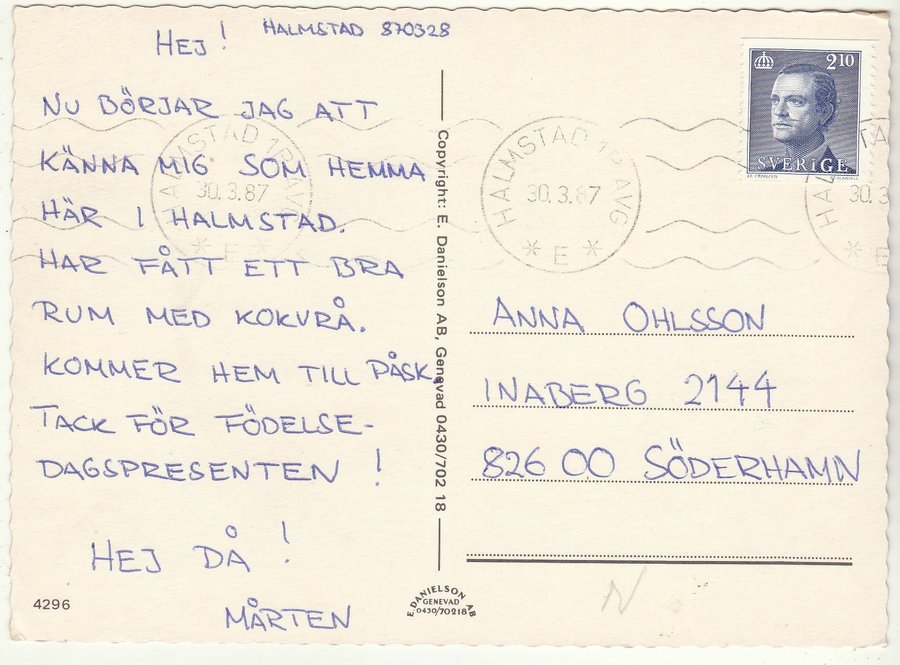 HEJ! HALMSTAD 870328
NU BÖRJAR JAG ATT
KÄNNA MIG SOM HEMMA
HÄR I HALMSTAD.
HAR FÅTT ETT BRA
RUM MED KOKVRÅ.
KOMMER HEM TILL PÅSK.
TACK FÖR FÖDELSE-
DAGSPRESENTEN!
HEJ DÅ!
MÅRTEN
4296
Copyright: E. Danielson AB, Genevad 0430/702 18
E. DANIELSON AB
GENEVAD
0430/70218
2.10
SVERIGE
HALMSTAD 1P AVG
30.3.87
* E *
HALMSTAD 1P AVG
30.3.87
* E *
30.3
* E
ANNA OHLSSON
INABERG 2144
826 00 SÖDERHAMN
N